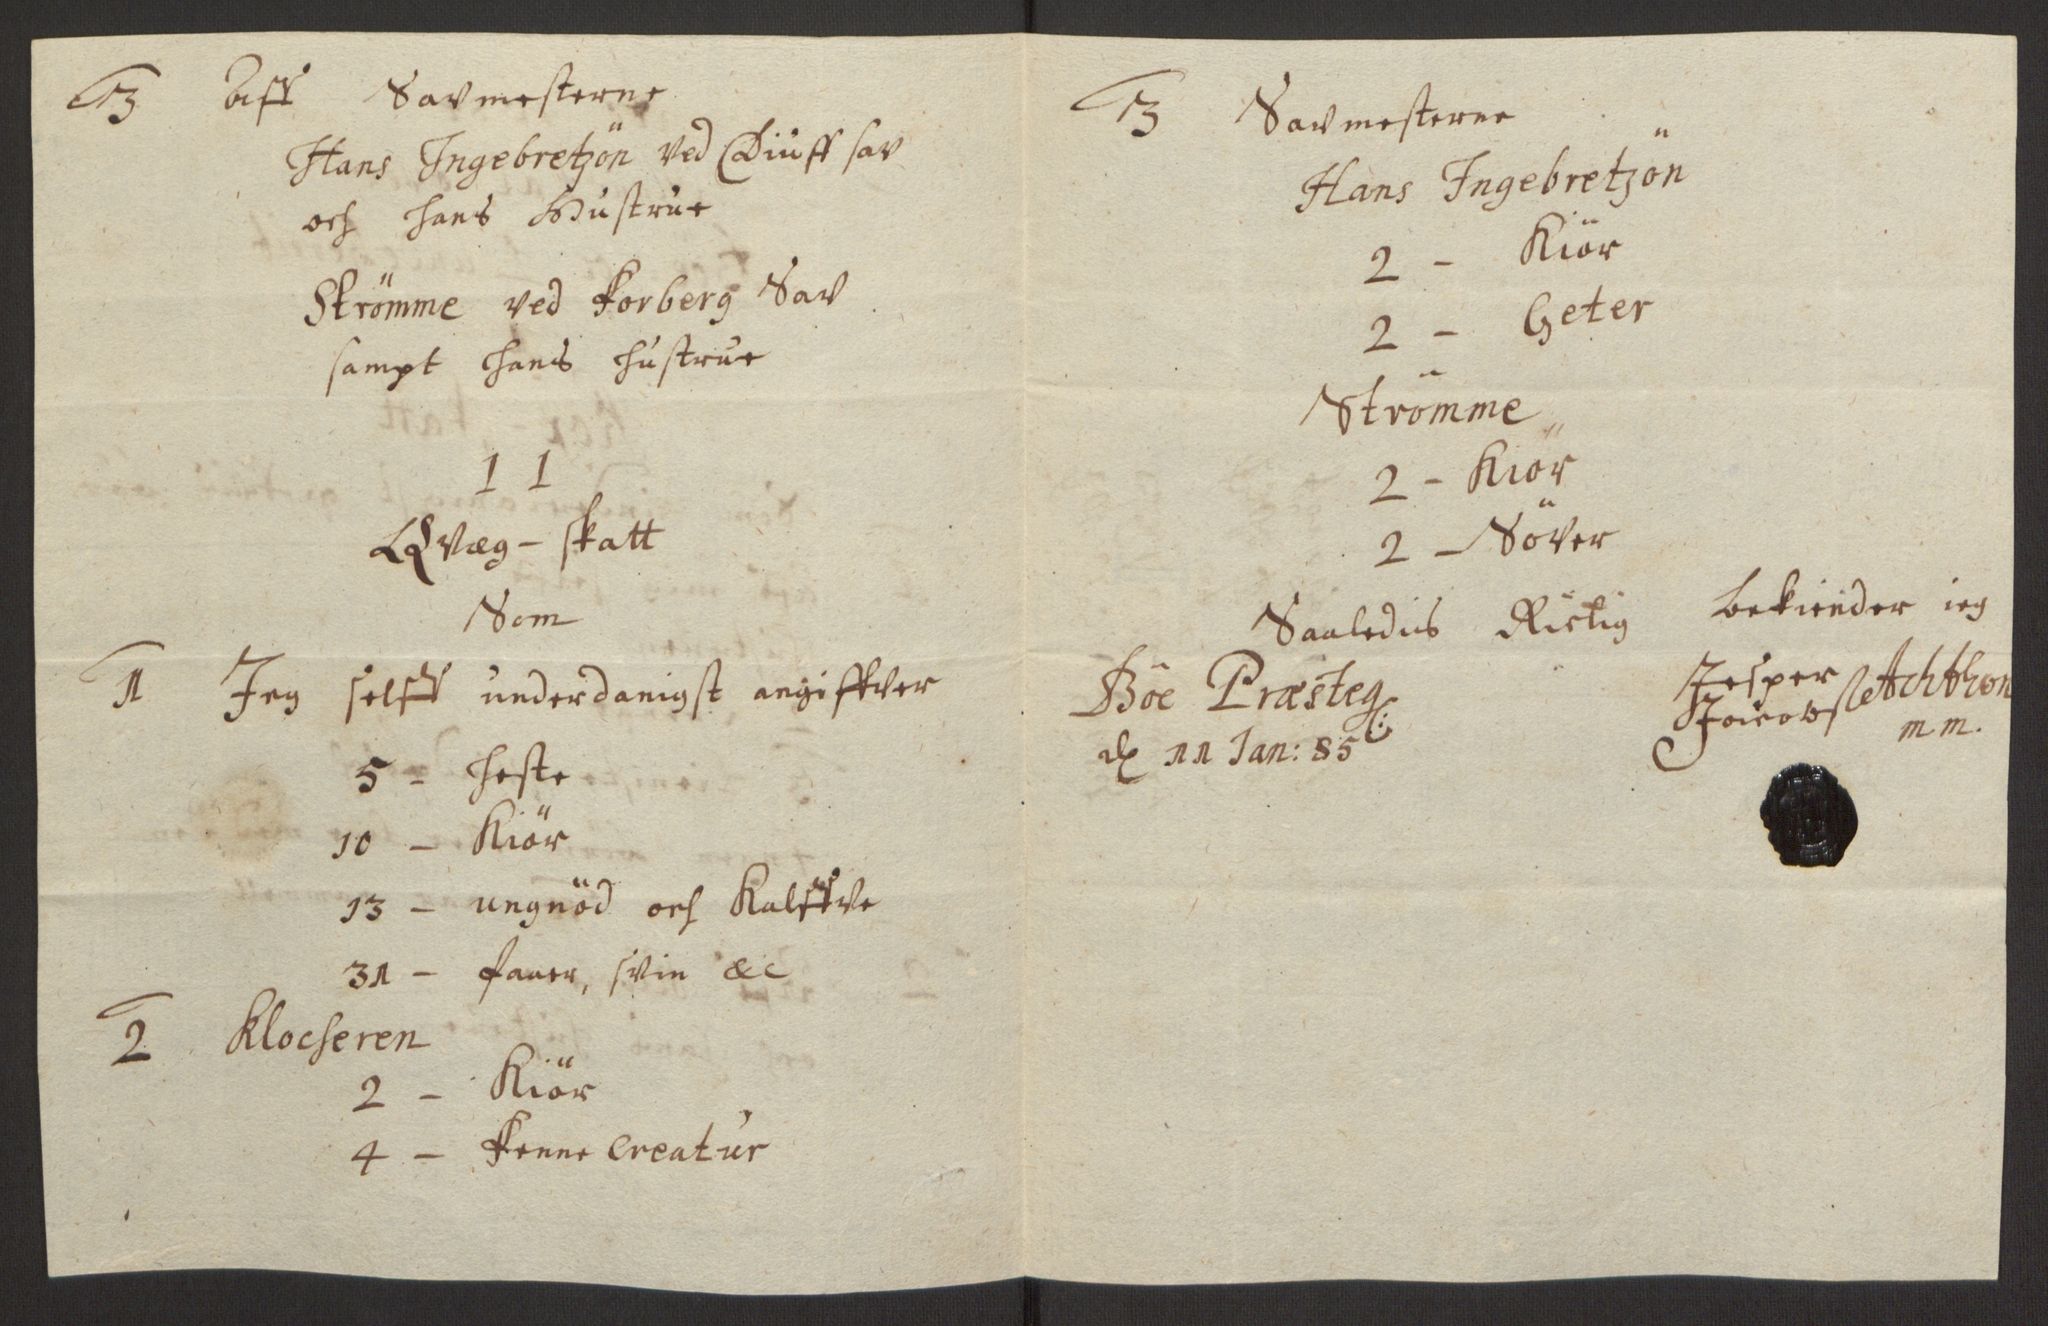 3 Aff Savmesterne
Hans Ingebretzön ved Diuff sav
och hans Hustrue
Strömme ved Korberg Sav
sampt hans hustrue
11
Qvæg-skatt
Som
1 Jeg selff underdanigst angiffver
5 - heste
10 - Kiör
13 - ungnöd och Kalffve
31 - faaer, svin &c
2 Klocheren
2 - Kiör
4 - Kenne Creatur
3 Savmesterne
Hans Ingebretzön
2 - Kiör
2 - Geter
Strömme
2 - Kiör
2 - Söver
Saaledis Rictig bekiender ieg
Böe Præsteg:
d 11 Jan: 85
Jesper
Jacobs
mm.